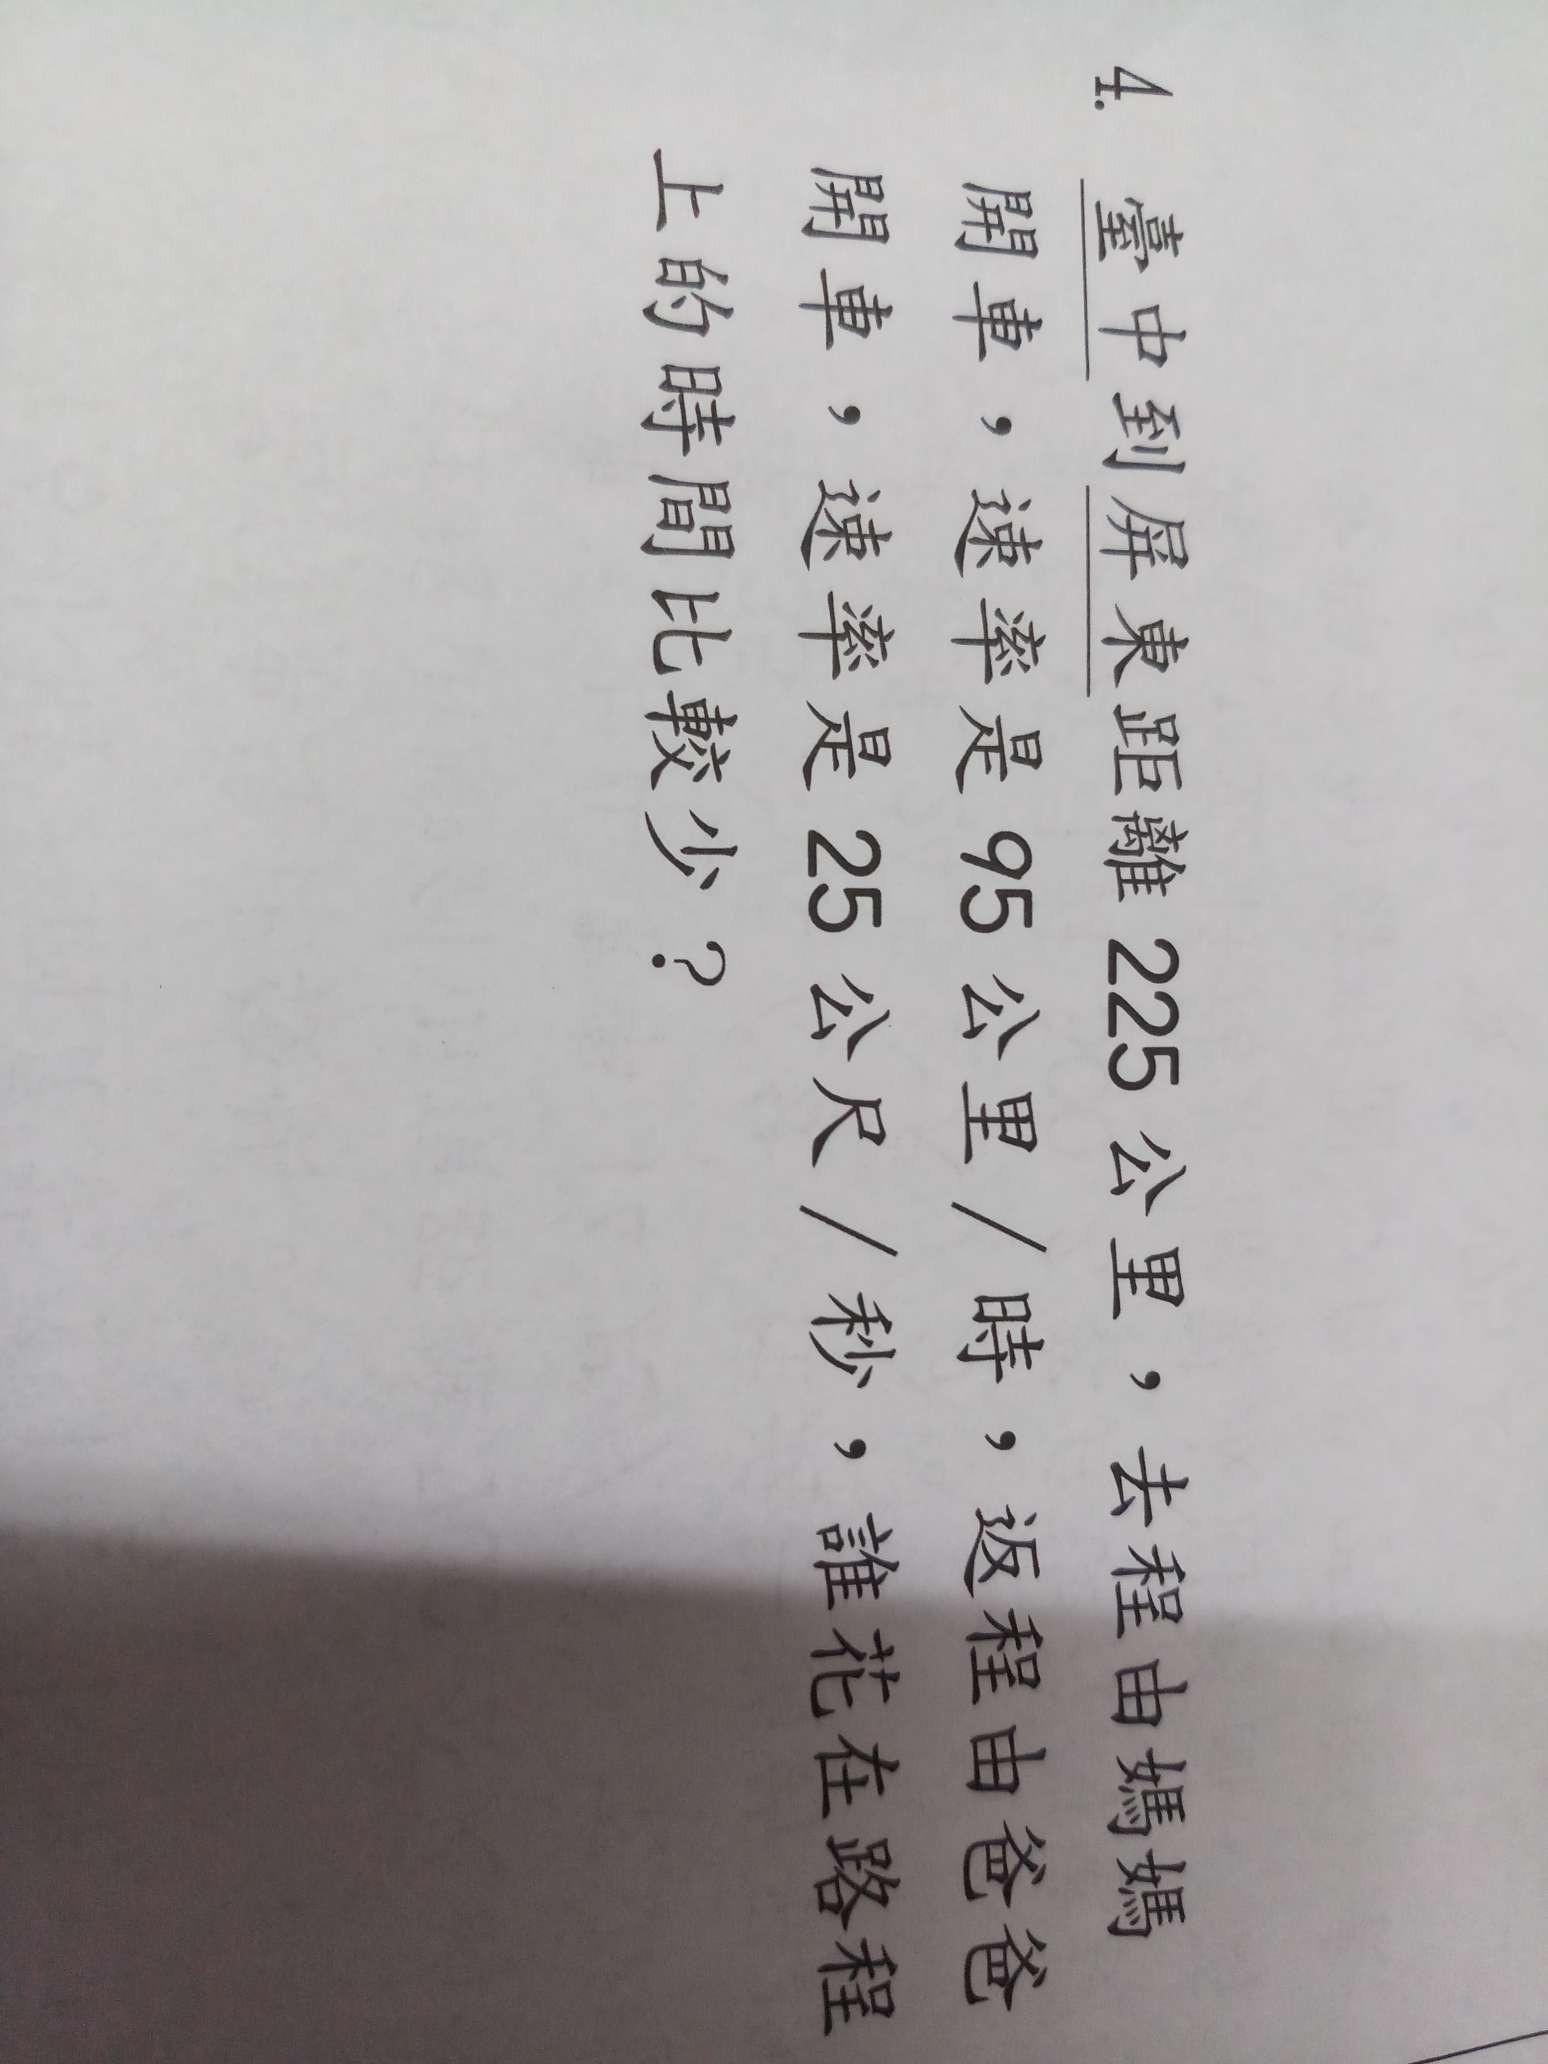 4. 臺中到屏東距離 225 公里，去程由媽媽
開車，速率是 95 公里/時，返程由爸爸
開車，速率是 25 公尺/秒，誰花在路程
上的時間比較少？